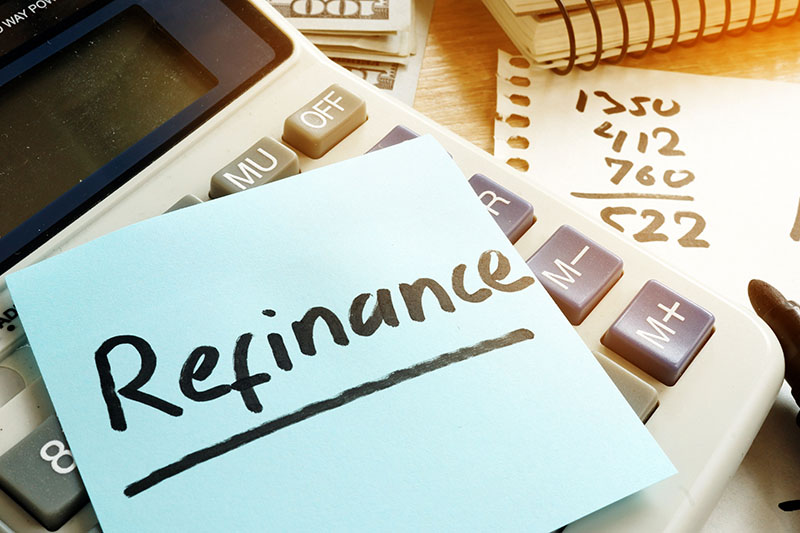 WAY POW
100
100
OFF
MU
R
M–
M+
8
1350
412
760
2522
Refinance